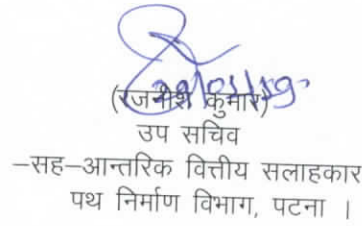 (रजनीश कुमार)
उप सचिव
–सह–आन्तरिक वित्तीय सलाहकार
पथ निर्माण विभाग, पटना ।